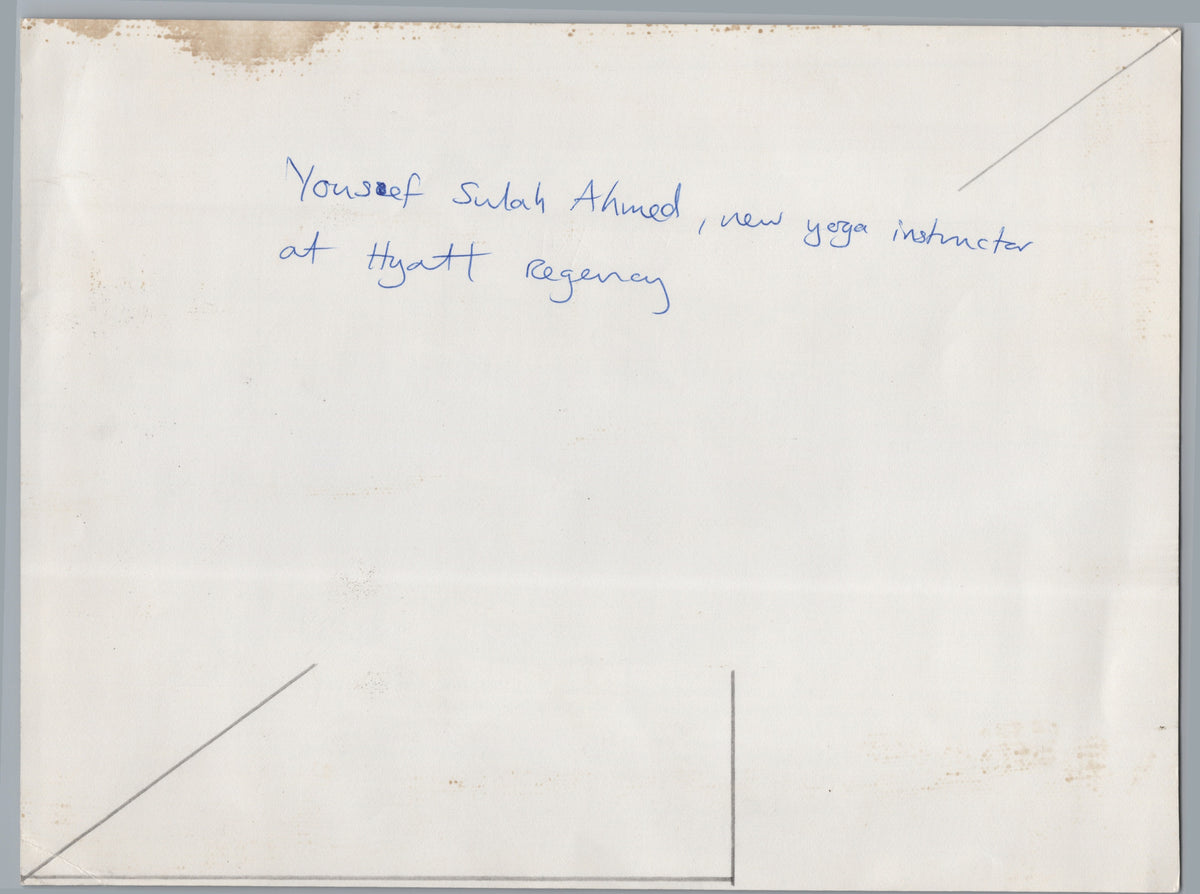 Youssef Sulah Ahmed, new yoga instructor
at Hyatt Regency